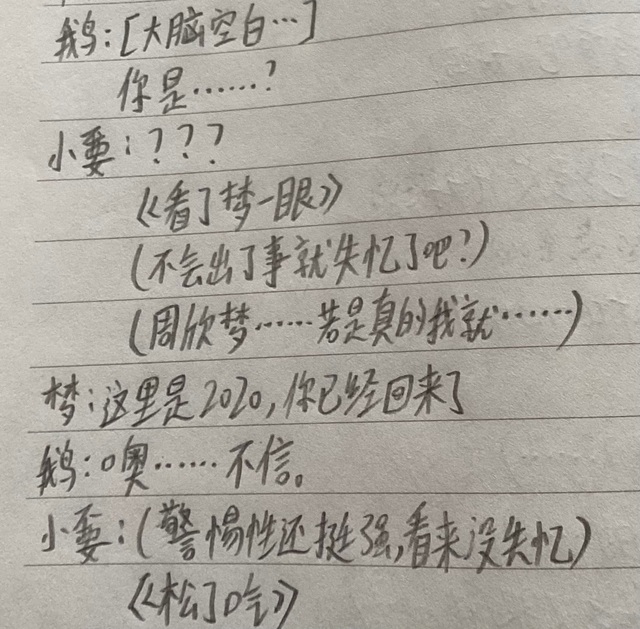 鹅:[大脑空白…]
你是……?
小要:???
《看了梦一眼》
(不会出了事就失忆了吧?)
(周欣梦……若是真的我就……)
梦:这里是2020,你已经回来了
鹅:噢……不信。
小要:(警惕性还挺强,看来没失忆)
《松了口气》